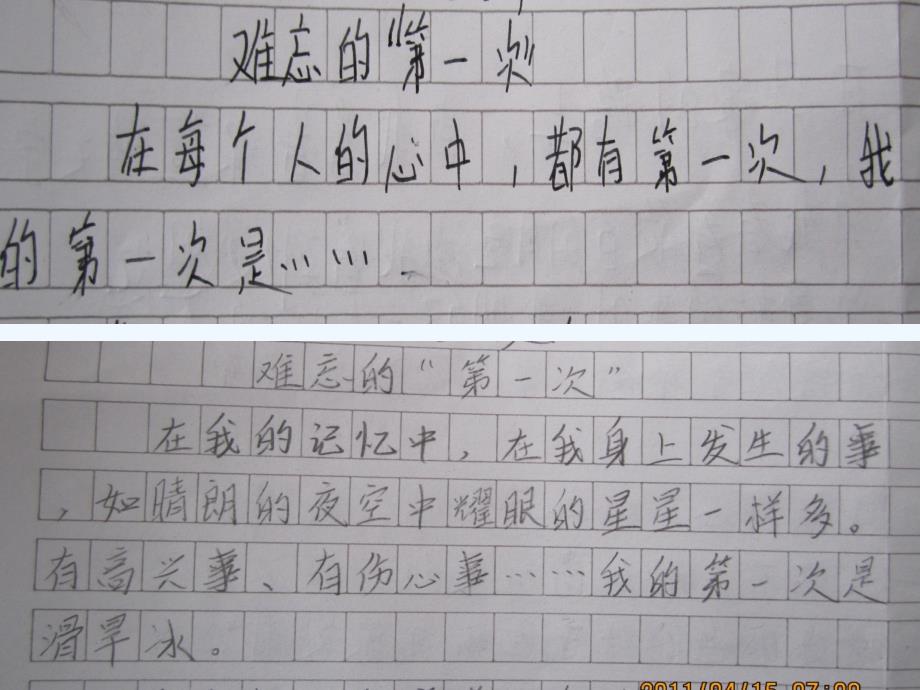 难忘的“第一次”
在每个人的心中,都有第一次,我
的第一次是……
难忘的“第一次”
在我的记忆中,在我身上发生的事
,如晴朗的夜空中耀眼的星星一样多。
有高兴事、有伤心事……我的第一次是
滑旱冰。